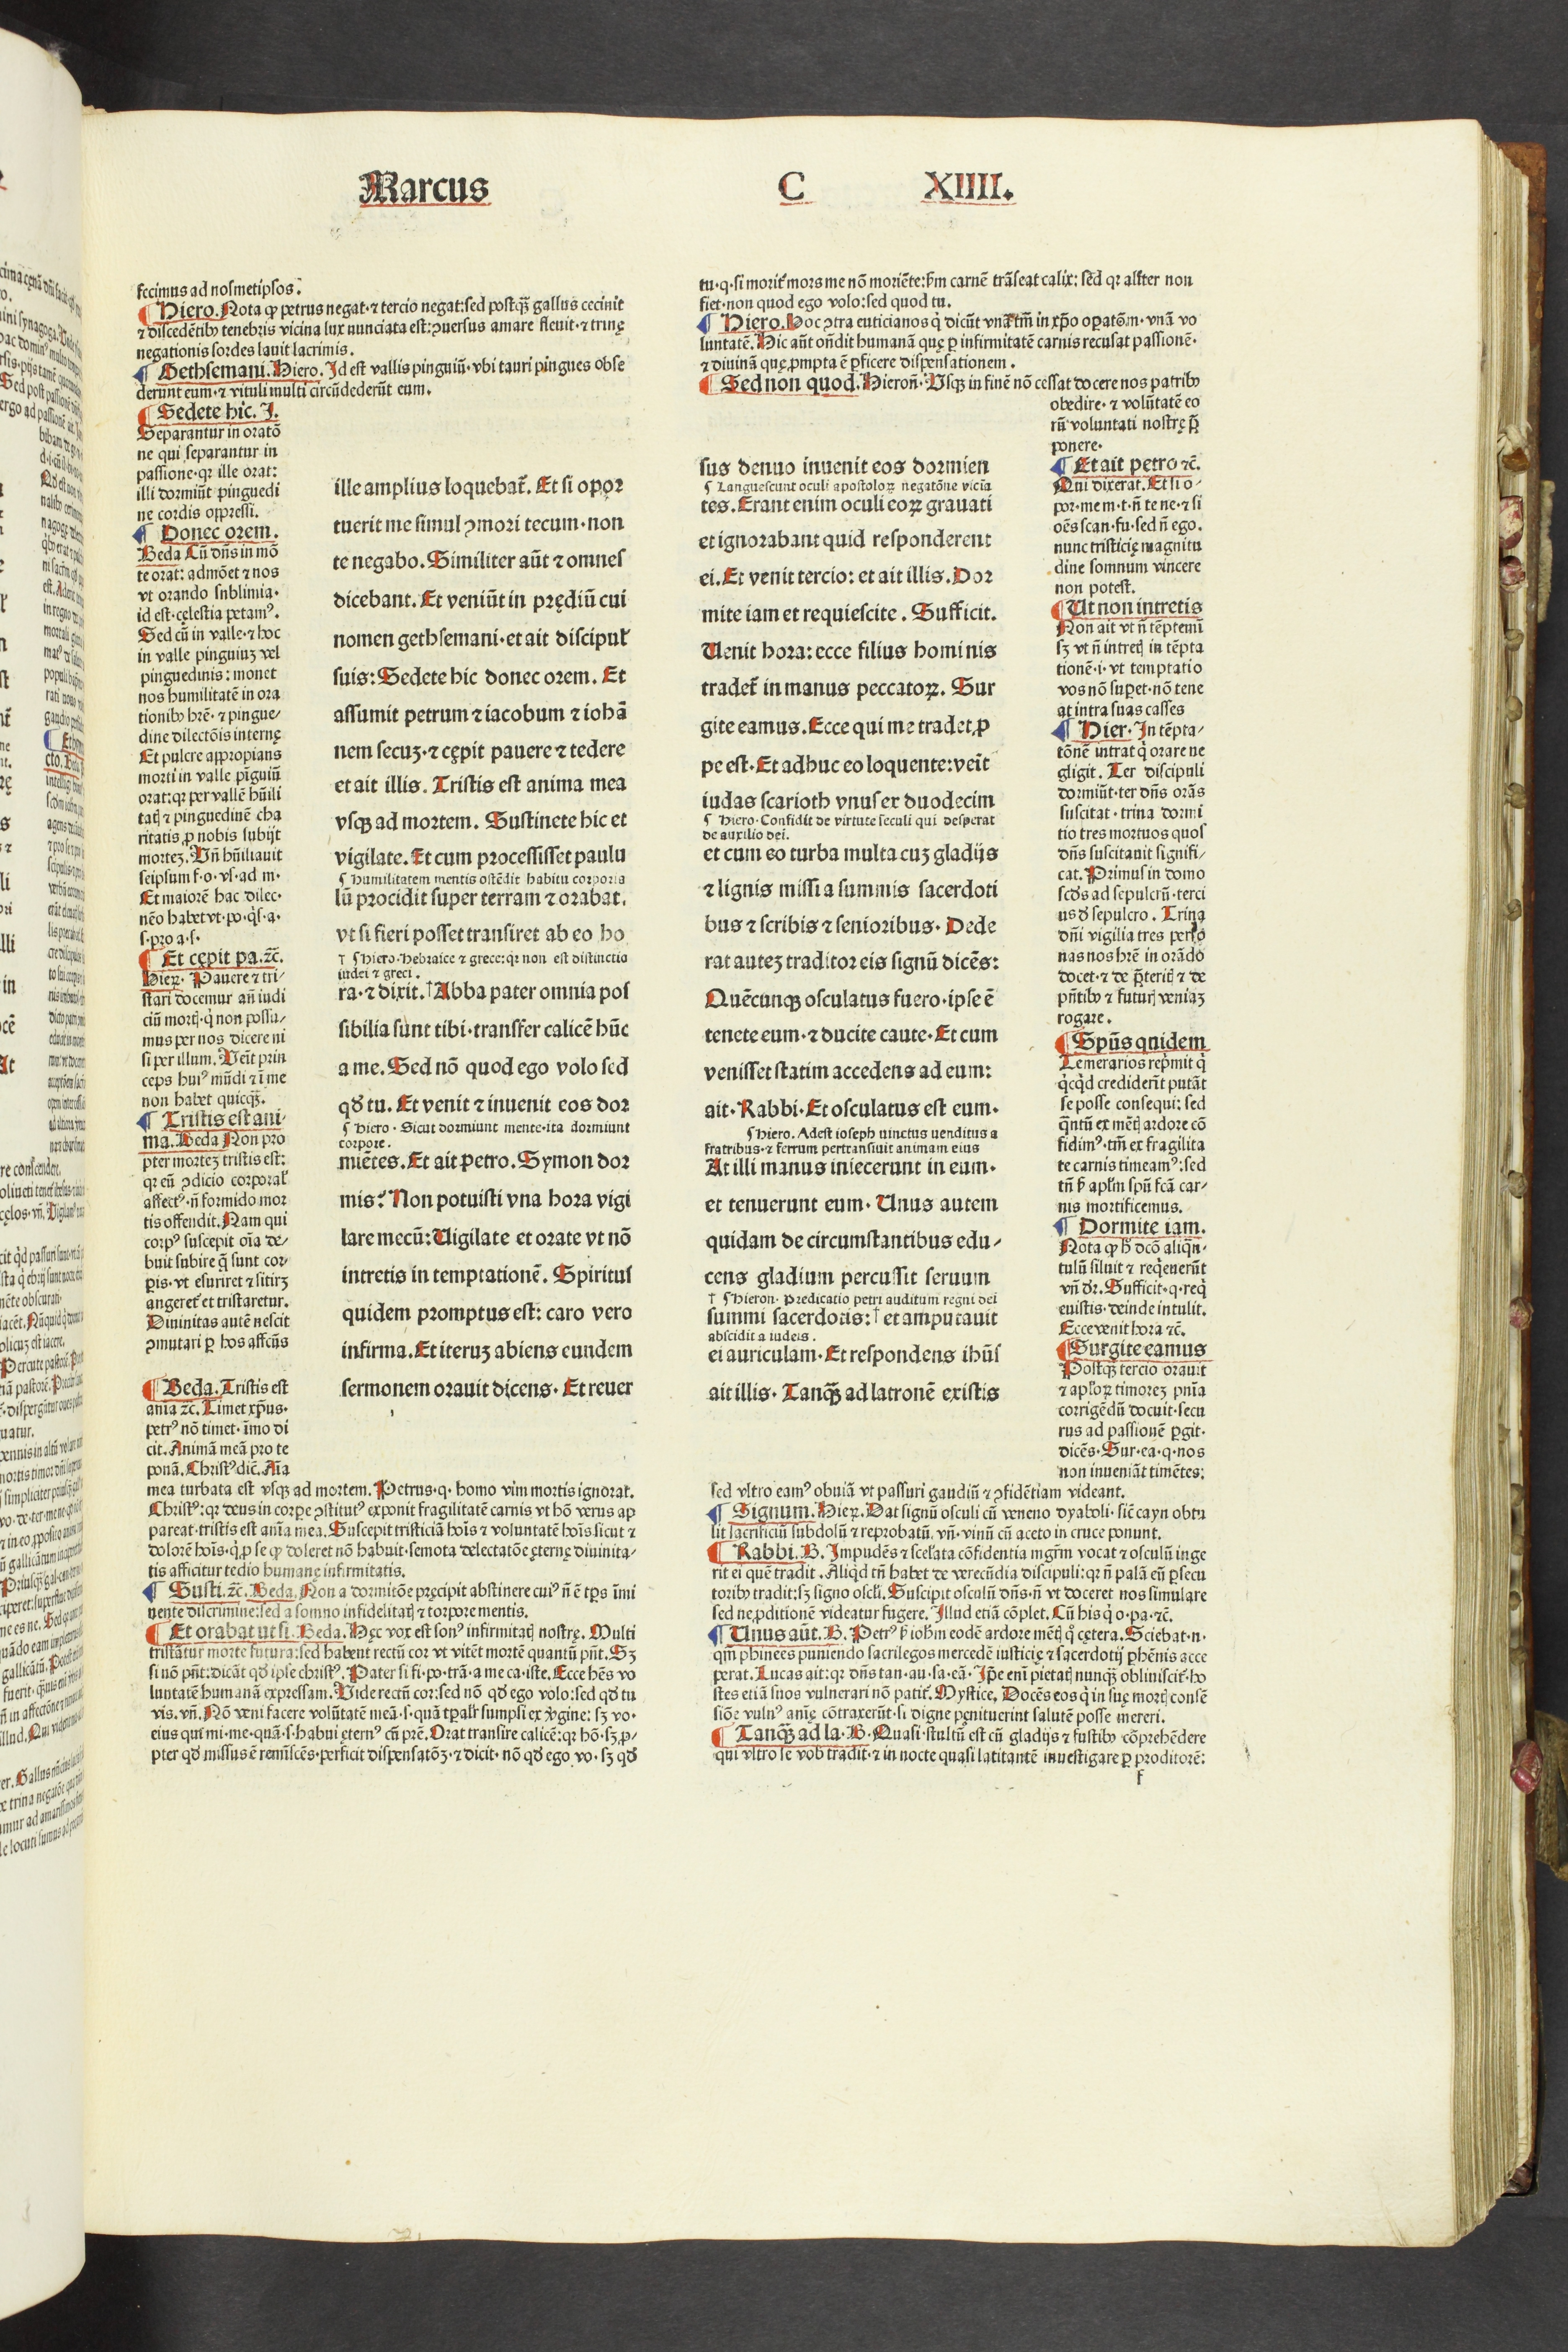 Marcus C XIIII.
fecimus ad nosmetipsos.
Hiero. Nota ꝙ petrus negat·⁊ tercio negat: sed postqȝ̃ gallus cecinit
⁊ discedẽtibꝰ tenebris vicina lux nunciata est: ꝯuersus amare fleuit·⁊ trinę
negationis sordes lauit lacrimis.
¶ Gethsemani. Hiero. Id est vallis pinguiũ· vbi tauri pingues obse
derunt eum·⁊ vituli multi circũdederũt eum.
¶ Sedete hic. I.
Separantur in oratõ
ne qui separantur in
passione·qꝛ ille orat:
illi dormiũt pinguedi
ne cordis oppressi.
¶ Donec orem.
Beda Cũ dñs in mõ
te orat: admõet ⁊ nos
vt orando snblimia·
id est·cęlestia petamꝰ.
Sed cũ in valle·⁊ hoc
in valle pinguiuȝ vel
pinguedinis: monet
nos humilitatẽ in ora
tionibꝰ hr̃e·⁊ pingue/
dine dilectõis internę
Et pulcre appropians
morti in valle pĩguiũ
orat: qꝛ per vallẽ hũili
tatꝭ ⁊ pinguedinẽ cha
ritatis ꝓ nobis subijt
morteȝ. Vñ hũiliauit
seipsum f·o·vs·ad m·
Et maiorẽ hac dilec·
nẽo habet vt·po·qͥs·a·
s·pro a·s·
¶ Et cępit pa.ꝛc̃.
Hieꝝ· Pauere ⁊ tri/
stari docemur añ iudi
ciũ mortꝭ·qͥ non possu/
mus per nos dicere ni
si per illum. Veĩt prin
ceps huiꝰ mũdi ⁊ ĩ me
non habet quicqȝ̃.
¶ Tristis est ani·
ma. Beda Non pro
pter morteȝ tristis est:
qꝛ eũ ꝯdicio corporal̃
affectꝰ·ñ formido mor
tis offendit. Nam qui
corpꝰ suscepit oĩa de/
buit subire q̃ sunt cor·
ꝑis·vt esuriret ⁊ sitirȝ
angeret̃ et tristaretur.
Diuinitas autẽ nescit
ꝯmutari ꝑ hos affcũs
¶ Beda. Tristis est
anĩa ꝛc̃. Timet xp̃us·
petrꝰ nõ timet·ĩmo di
cit. Animã meã pro te
ponã. Christꝰ dic̃. Aĩa
mea turbata est vsqȝ ad mortem. Petrus·q· homo vim mortis ignorat.
Christꝰ: qꝛ deus in corpe ꝯstitutꝰ exponit fragilitatẽ carnis vt hõ verus ap
pareat·tristis est anĩa mea. Suscepit tristiciã hoĩs ⁊ voluntatẽ hoĩs sicut ⁊
dolorẽ hoĩs·qͥ ꝑ se ꝙ doleret nõ habuit·semota delectatõe ęternę diuinita/
tis afficitur tedio humanę infirmitatis.
¶ Susti.ꝛc̃. Beda. Non a dormitõe pręcipit abstinere cuiꝰ ñ ẽ tp̃s ĩmi
nente discrimine: sed a somno infidelitatꝭ ⁊ torpore mentis.
¶ Et orabat ut si. Beda. Hęc vox est sonꝰ infirmitatꝭ nostrę. Multi
tristãtur morte futura: sed habent rectũ cor vt vitẽt mortẽ quantũ pñt. Sȝ
si nõ pñt: dicãt qd̃ ipse christꝰ. Pater si fi·po·trã·a me ca·iste. Ecce hẽs vo
luntatẽ humanã expressam. Vide rectũ cor: sed nõ qd̃ ego volo: sed qd̃ tu
vis.vñ. Nõ veni facere volũtatẽ meã·s·quã tp̃alr̃ sumpsi ex v̾gine: sȝ vo·
eius qui mi·me·quã·s·habui ęternꝰ cũ pr̃e. Orat transire calicẽ: qꝛ hõ·sȝ ꝓ/
pter qd̃ missus ẽ remĩscẽs·perficit dispensatõȝ·⁊ dicit· nõ qd̃ ego vo·sȝ qd̃
ille amplius loquebat̃. Et si opor
tuerit me simul ꝯmori tecum·non
te negabo. Similiter aũt ⁊ omnes
dicebant. Et veniũt in prędiũ cui
nomen gethsemani·et ait discipul̃
suis: Sedete hic donec orem. Et
assumit petrum ⁊ iacobum ⁊ iohã
nem secuȝ·⁊ cępit pauere ⁊ tedere
et ait illis. Tristis est anima mea
vsqȝ ad mortem. Sustinete hic et
vigilate. Et cum processisset paulu
¶ humilitatem mentis ostẽdit habitu corporis
lũ procidit super terram ⁊ orabat.
vt si fieri posset transiret ab eo ho
† ¶ Hiero·Hebraice ⁊ grece: qꝛ non est distinctio
iudei ⁊ greci.
ra·⁊ dixit.† Abba pater omnia pos
sibilia sunt tibi·transfer calicẽ hũc
a me. Sed nõ quod ego volo sed
qd̃ tu. Et venit ⁊ inuenit eos dor
¶ Hiero· Sicut dormiunt mente·ita dormiunt
corpore.
miẽtes. Et ait petro. Symon dor
mis? Non potuisti vna hora vigi
lare mecũ: Uigilate et orate vt nõ
intretis in temptationẽ. Spiritus
quidem promptus est: caro vero
infirma. Et iteruȝ abiens eundem
sermonem orauit dicens· Et reuer
tu·q·si morit̃ mors me nõ moriẽte: ẜm carnẽ trãseat calix: sed qꝛ alit̃er non
fiet·non quod ego volo: sed quod tu.
¶ Hiero. Hoc ꝯtra euticianos qͥ dicũt vnã tm̃ in xp̃o oꝑatõm·vnã vo
luntatẽ. Hic aũt oñdit humanã quę ꝑ infirmitatẽ carnis recusat passionẽ·
⁊ diuinã quę ꝓmpta ẽ ꝑficere dispensationem.
¶ Sed non quod. Hieroñ· Vsqȝ in finẽ nõ cessat docere nos patribꝰ
obedire·⁊ volũtatẽ eo
rũ voluntati nostrę p̃
ponere·
sus denuo inuenit eos dormien
¶ Languescunt oculi apostoloꝝ negatõne vicĩa
tes. Erant enim oculi eoꝝ grauati
et ignorabant quid responderent
ei. Et venit tercio: et ait illis. Dor
mite iam et requiescite. Sufficit.
Uenit hora: ecce filius hominis
tradet̃ in manus peccatoꝝ. Sur
gite eamus. Ecce qui me tradet ꝓ
pe est. Et adhuc eo loquente: veĩt
iudas scarioth vnus ex duodecim
¶ Hiero· Confidit de virtute seculi qui desperat
de auxilio dei.
et cum eo turba multa cuȝ gladijs
⁊ lignis missi a summis sacerdoti
bus ⁊ scribis ⁊ senioribus. Dede
rat auteȝ traditor eis signũ dicẽs:
Quẽcunqȝ osculatus fuero·ipse ẽ
tenete eum·⁊ ducite caute· Et cum
venisset statim accedens ad eum:
ait· Rabbi· Et osculatus est eum·
¶ Hiero. Adest ioseph uinctus uenditus a
fratribus·⁊ ferrum pertransiuit animam eius
At illi manus iniecerunt in eum·
et tenuerunt eum· Unus autem
quidam de circumstantibus edu/
cens gladium percussit seruum
† ¶ Hieron· Predicatio petri auditum regni dei
summi sacerdotis:† et amputauit
abscidit a iudeis.
ei auriculam· Et respondens ihũs
ait illis· Tanqȝ̃ ad latronẽ existis
¶ Et ait petro ꝛc̃.
Qui dixerat. Et si o/
por·me m·t·ñ te ne·⁊ si
oẽs scan·fu·sed ñ ego.
nunc tristicię magnitu
dine somnum vincere
non potest.
¶ Ut non intretis
Non ait vt ñ tẽptemĩ
sȝ vt ñ intretꝭ in tẽpta
tionẽ·i·vt temptatio
vos nõ suꝑet·nõ tene
at intra suas casses
¶ Hier· In tẽpta/
tõnẽ intrat qͥ orare ne
gligit. Ter discipuli
dormiũt·ter dñs orãs
suscitat·trina dormi
tio tres mortuos quos
dñs suscitauit signifi/
cat. Primus in domo
scd̃s ad sepulcrũ·terci
us d̃ sepulcro. Trina
dñi vigilia tres perso
nas nos hr̃e in orãdo
docet·⁊ de p̃teritꝭ ⁊ de
pñtibꝰ ⁊ futurꝭ veniaȝ
rogare.
¶ Spũs quidem
Temerarios rep̃mit qͥ
qͥcqͥd crediderĩt putãt
se posse consequi: sed
q̃ntũ ex mẽtꝭ ardore cõ
fidimꝰ·tm̃ ex fragilita
te carnis timeamꝰ: sed
tñ ẜ apl̃m spũ fcã car/
nis mortificemus.
¶ Dormite iam.
Nota ꝙ h̾ dcõ aliq̃n·
tulũ siluit ⁊ reqͥeuerũt
vñ dr̃. Sufficit·q·reqͥ
euistis·deinde intulit.
Ecce venit hora ꝛc̃.
¶ Surgite eamus
Postqȝ̃ tercio orauit
⁊ apl̃oꝝ timoreȝ pnĩa
corrigẽdũ docuit·secu
rus ad passionẽ ꝑgit·
dicẽs·Sur·ea·q·nos
non inueniãt timẽtes:
sed vltro eamꝰ obuiã vt passuri gaudiũ ⁊ ꝯfidẽtiam videant.
¶ Signum. Hieꝝ. Dat signũ osculi cũ veneno dyaboli·sic̃ cayn obtu
lit sacrificiũ subdolũ ⁊ reprobatũ. vñ·vinũ cũ aceto in cruce ponunt.
¶ Rabbi. B. Impudẽs ⁊ scel̾ata cõfidentia mgr̃m vocat ⁊ osculũ inge
rit ei quẽ tradit. Aliqͥd tñ habet de verecũdia discipuli: qꝛ ñ palã eũ ꝑsecu
toribꝰ tradit: sȝ signo oscĺi. Suscipit osculũ dñs·ñ vt doceret nos simulare
sed ne ꝓditionẽ videatur fugere. Illud etiã cõplet. Cũ his qͥ o·pa·ꝛc̃.
¶ Unus aũt. B. Petrꝰ ẜ iohm̃ eodẽ ardore mẽtꝭ qͦ cętera. Sciebat·n·
qm̃ phinees puniendo sacrilegos mercedẽ iusticię ⁊ sacerdotij ꝑhẽnis acce
perat. Lucas ait: qꝛ dñs tan·au·sa·eã· Ip̃e eni pietatꝭ nunqȝ̃ obliuiscit̃·ho
stes etiã suos vulnerari nõ patit̃. Mystice. Docẽs eos qͥ in suę mortꝭ consẽ
siõe vulnꝰ anĩę cõtraxerũt·si digne penituerint salutẽ posse mereri.
¶ Tanqȝ̃ ad la·B· Quasi·stultũ est cũ gladijs ⁊ fustibꝰ cõprehẽdere
qui vltro se vob̃ tradit·⁊ in nocte quasi latitantẽ inuestigare ꝑ proditorẽ:
f